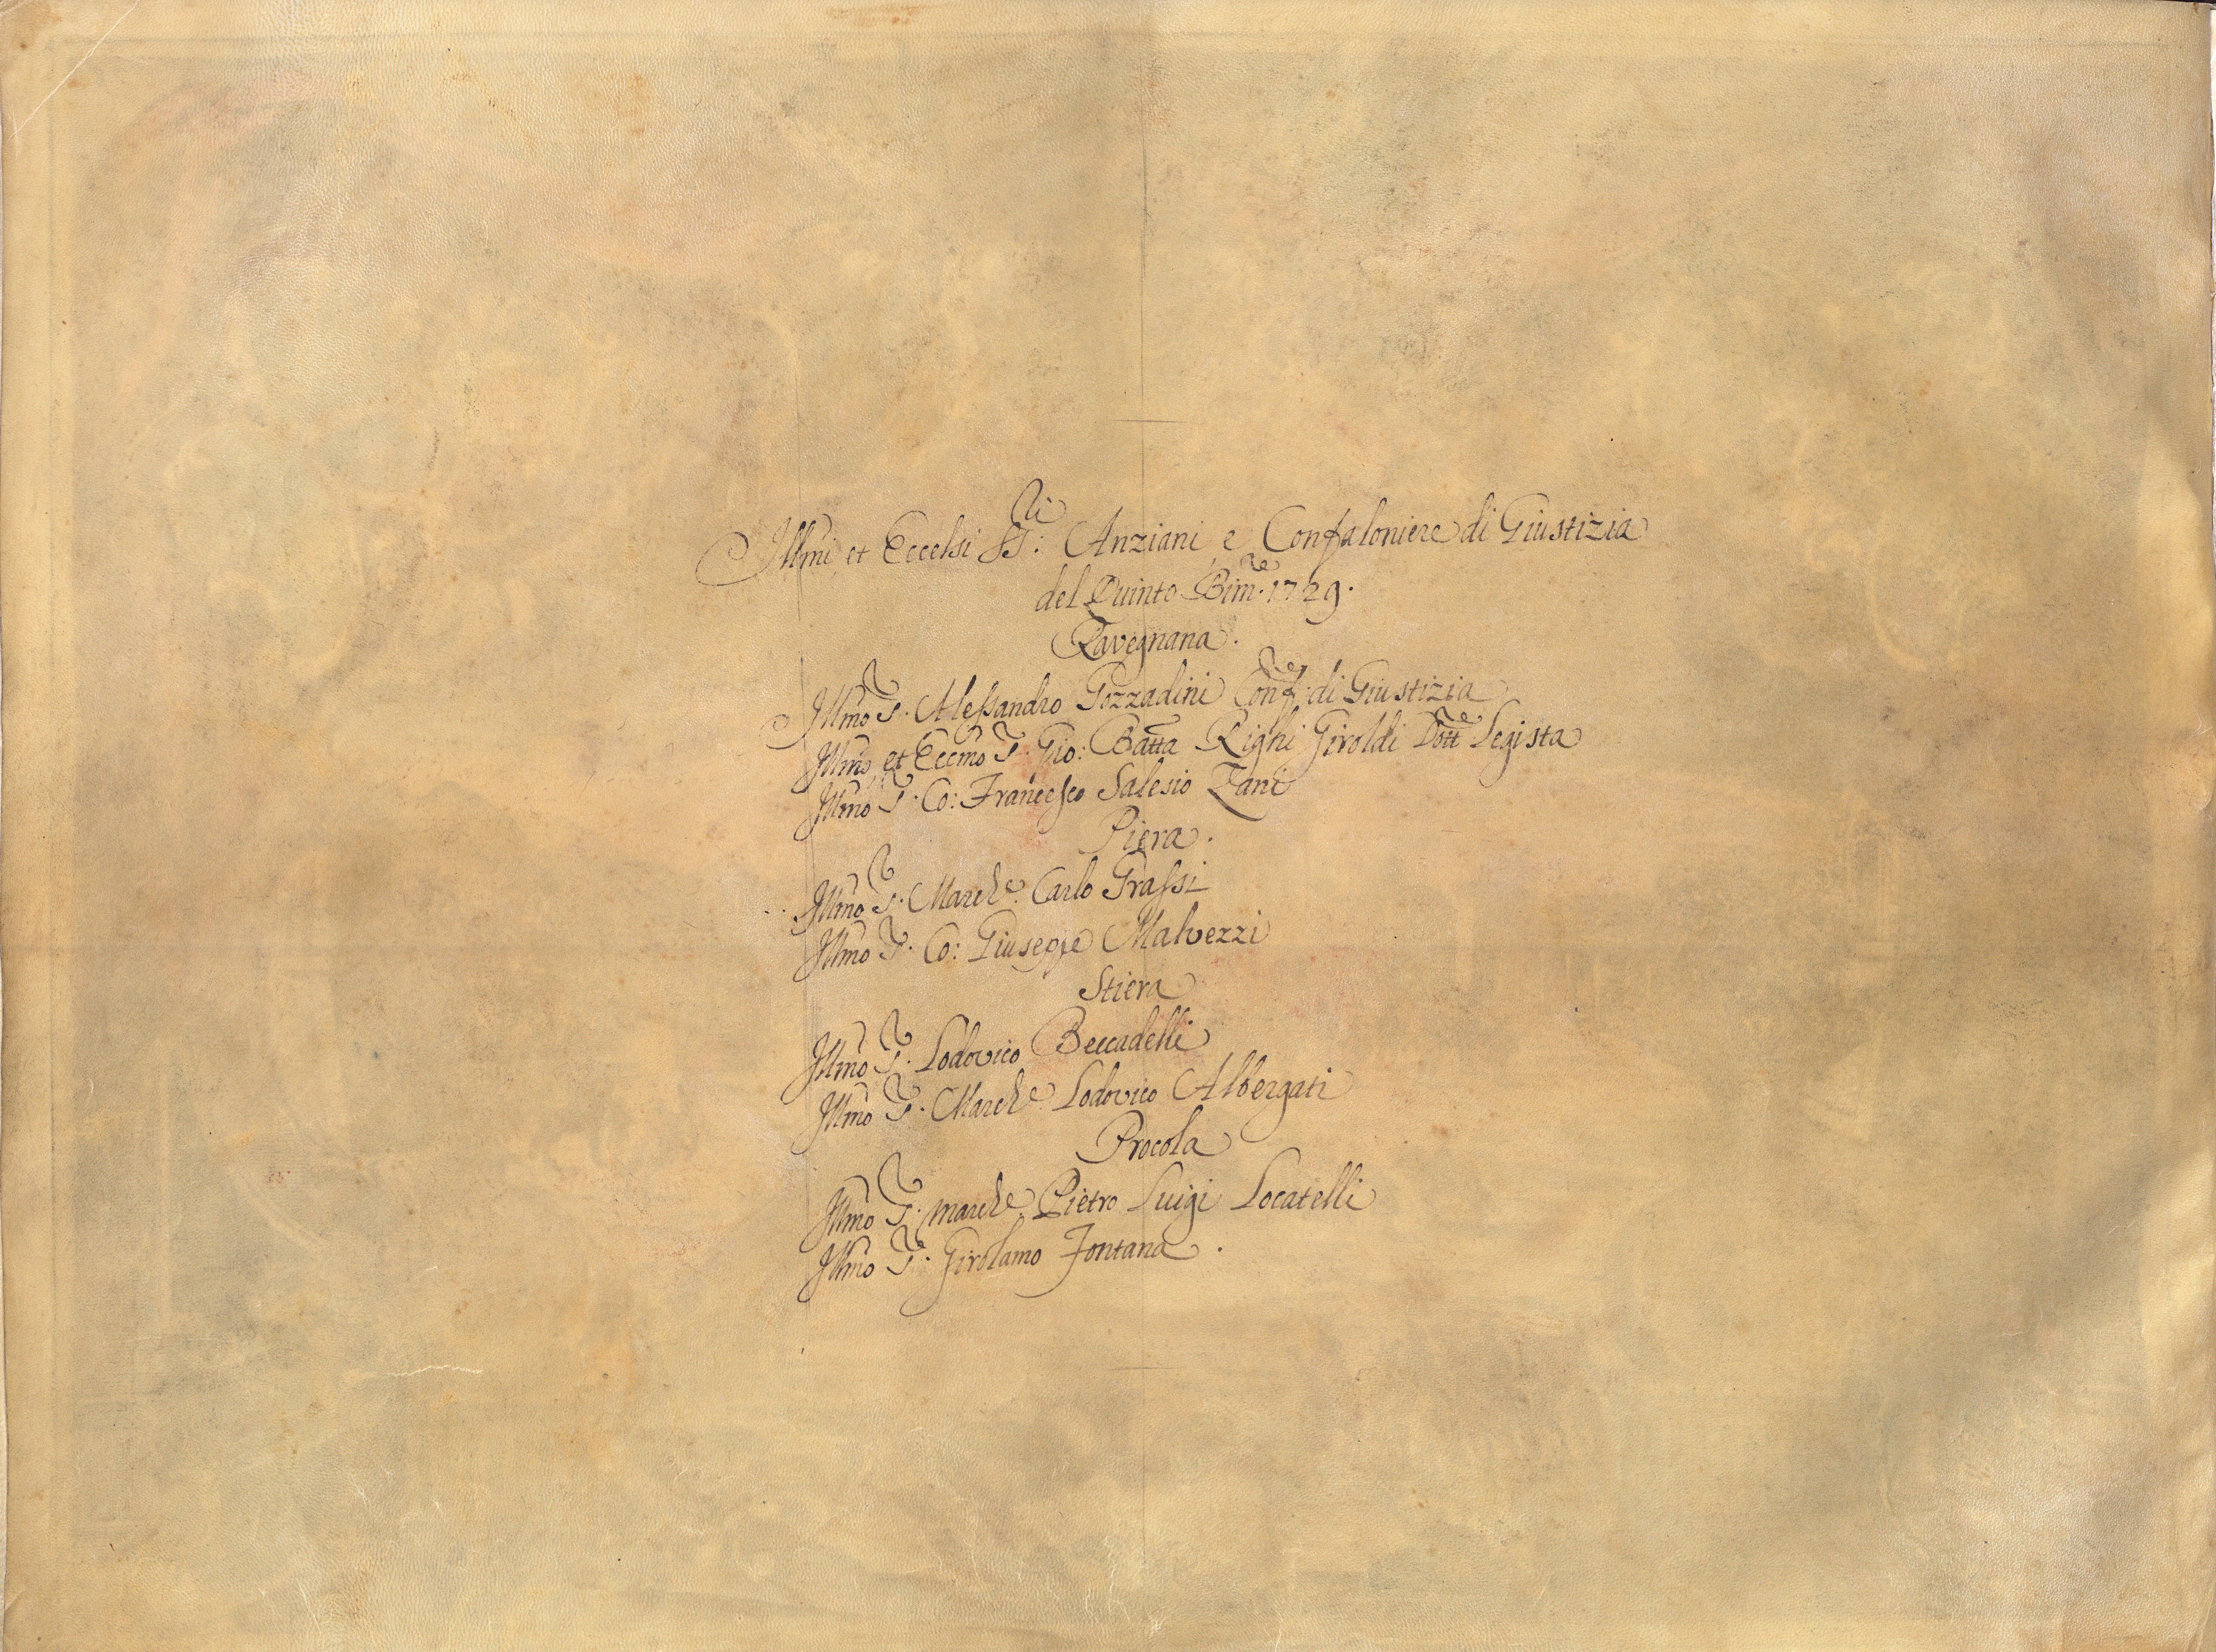 Illmi et Eccelsi SS:ri Anziani, e Confaloniere di Giustizia
del Quinto Bim:re 1729.
Ravegnana.
Illmo S:r Alessandro Gozzadini Conf:re di Giustizia
Illmo, et Eccmo S:r Gio: Batta Righi Giroldi Dott:re Legista
Illmo S:r Co: Francesco Salesio Zani
Piera.
Illmo S:r March:e Carlo Grassi
Illmo S:r Co: Giuseppe Malvezzi
Stiera
Illmo S:r Lodovico Beccadelli
Illmo S:r March:e Lodovico Albergati
Procola
Illmo S:r march:e Pietro Luigi Locatelli
Illmo S:r Girolamo Fontana.